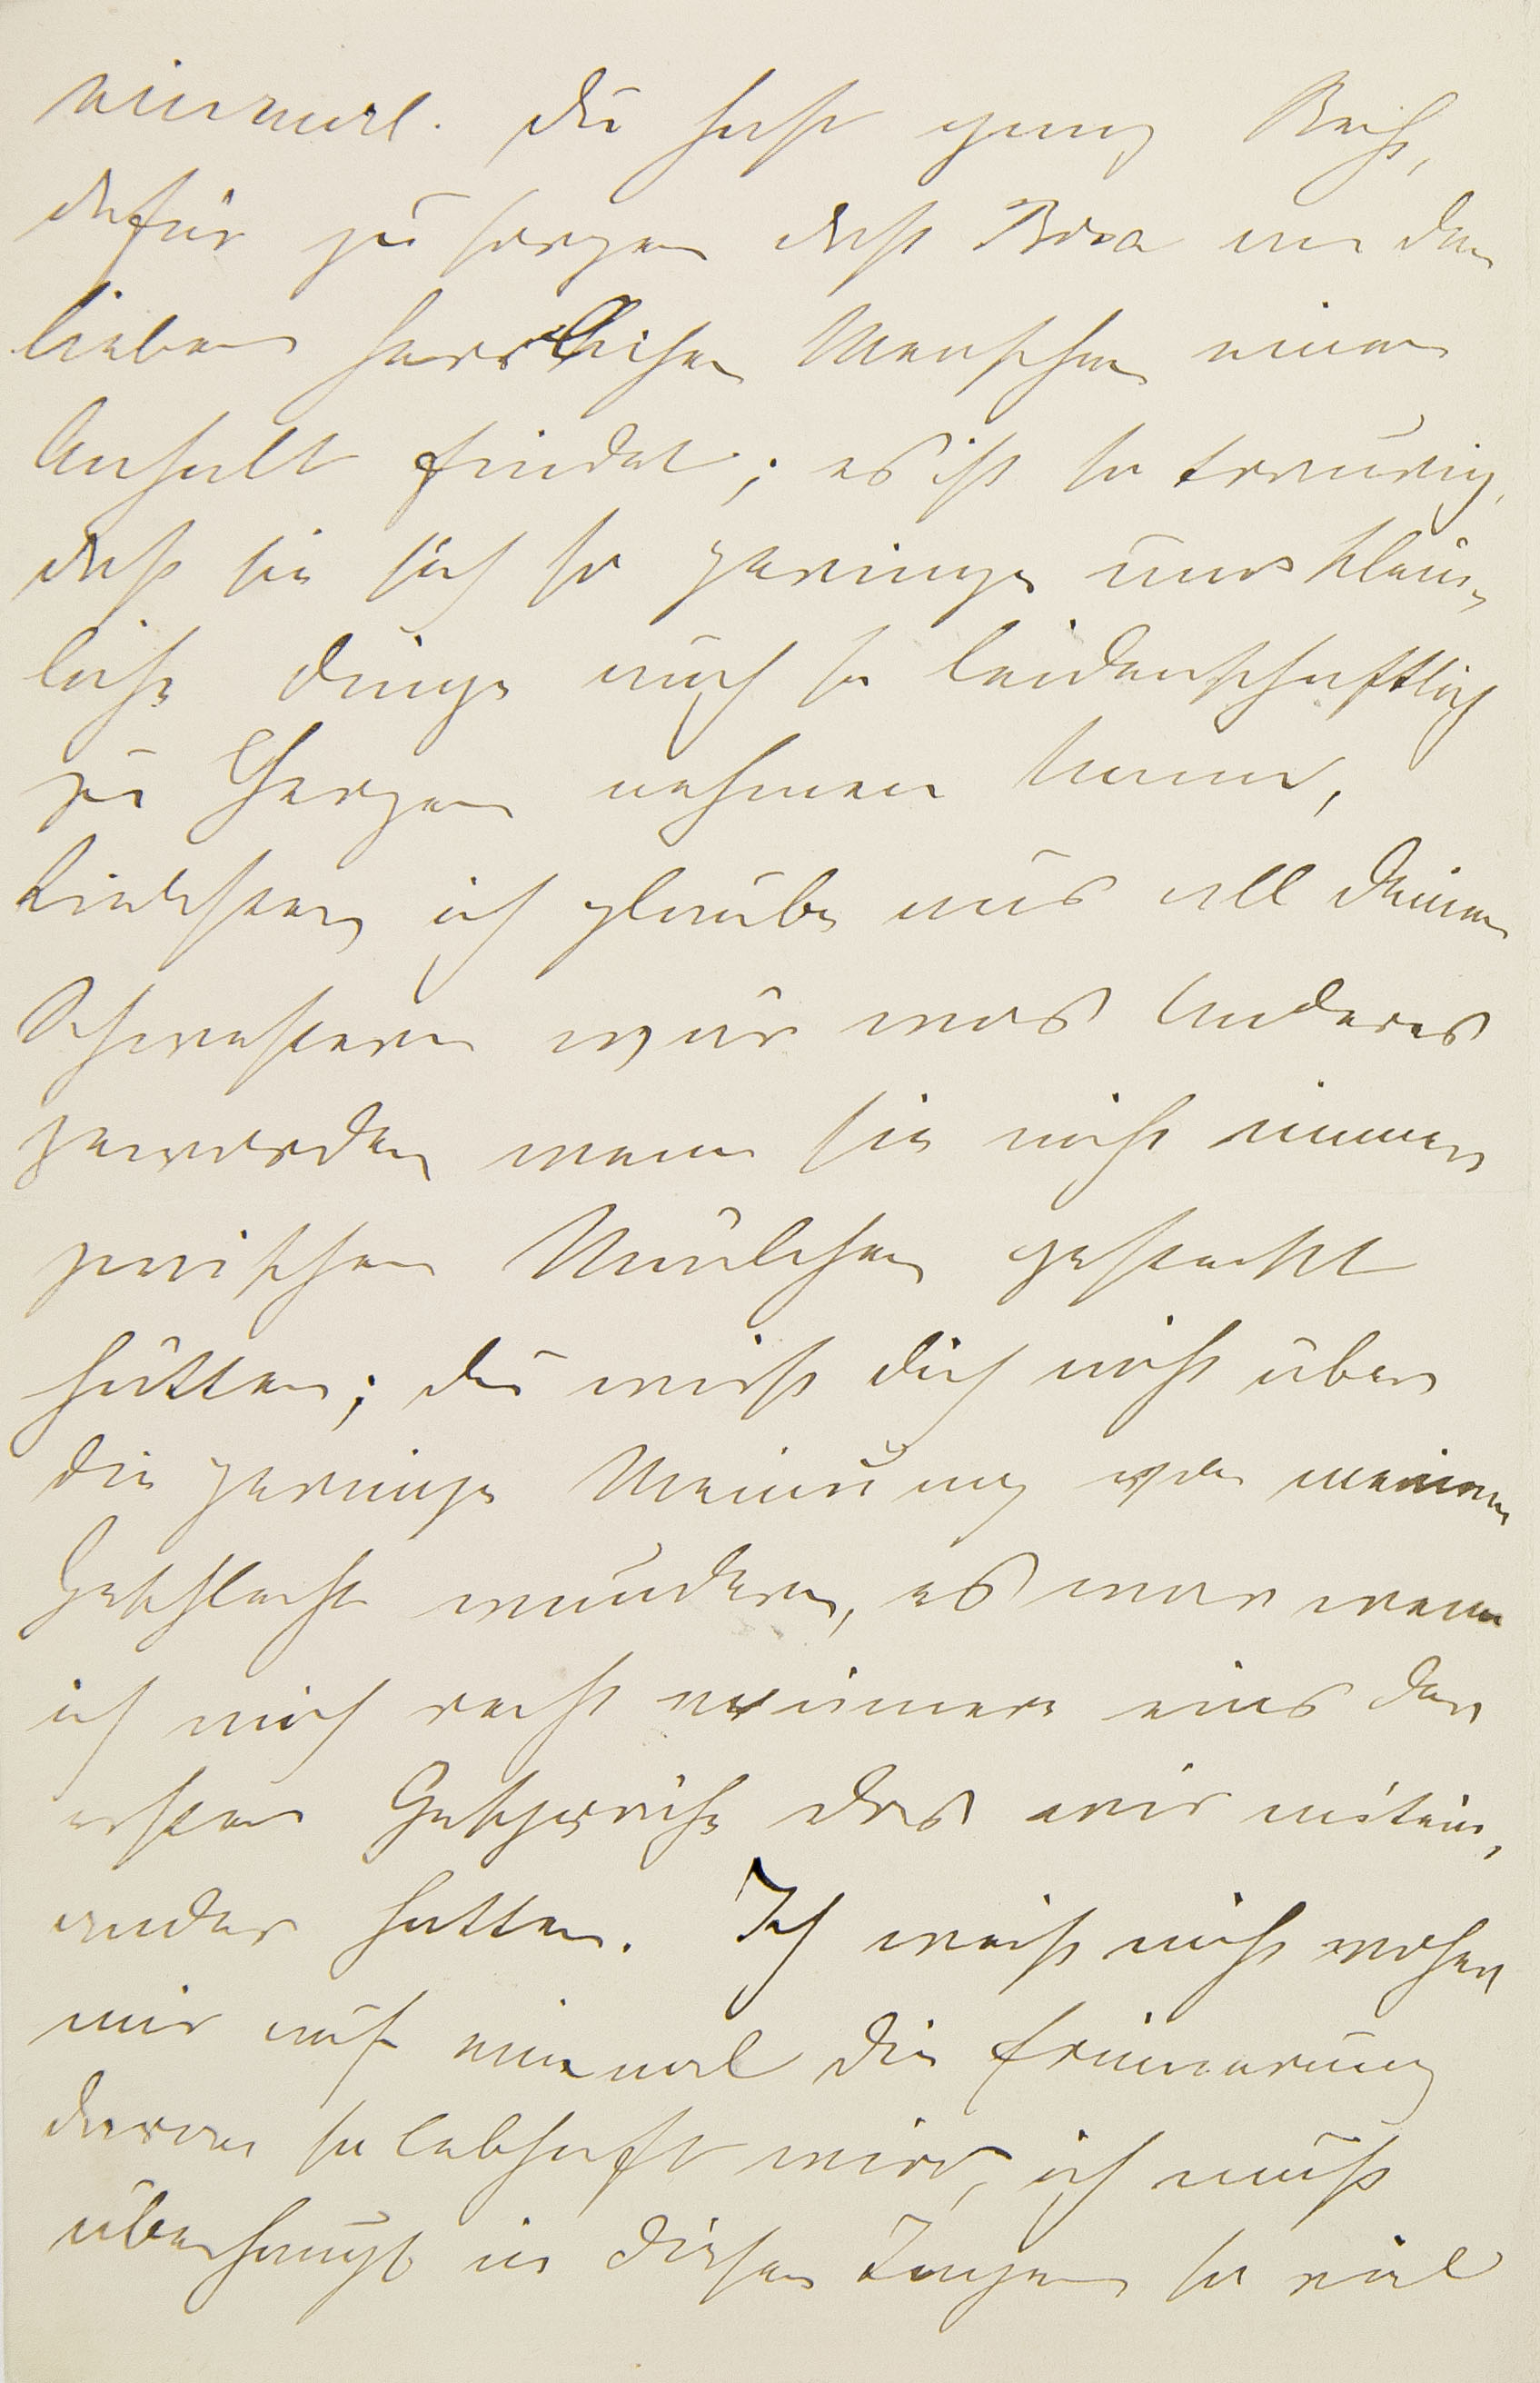 einmal. Du hast ganz Recht,
dafür zu sorgen daß Rosa an den
lieben herrlichen Menschen einen
Anhalt findet; es ist so traurig,
daß sie sich so geringe und klein-
liche Dinge auch so leidenschaftlich
zu Herzen nehmen kann,
Liebster, ich glaube aus all Deinen
Schwestern wär was Anderes
geworden wenn sie nicht immer
zwischen Mädchen gesteckt
hätten; Du wirst Dich nicht über
die geringe Meinung von meinem
Geschlecht wundern, es war wenn
ich mich recht erinnere eins der
ersten Gespräche das wir mitein-
ander hatten. Ich weiß nicht woher
mir auf einmal die Erinnerung
daran so lebhaft wird, ich muß
überhaupt in diesen Tagen so viel